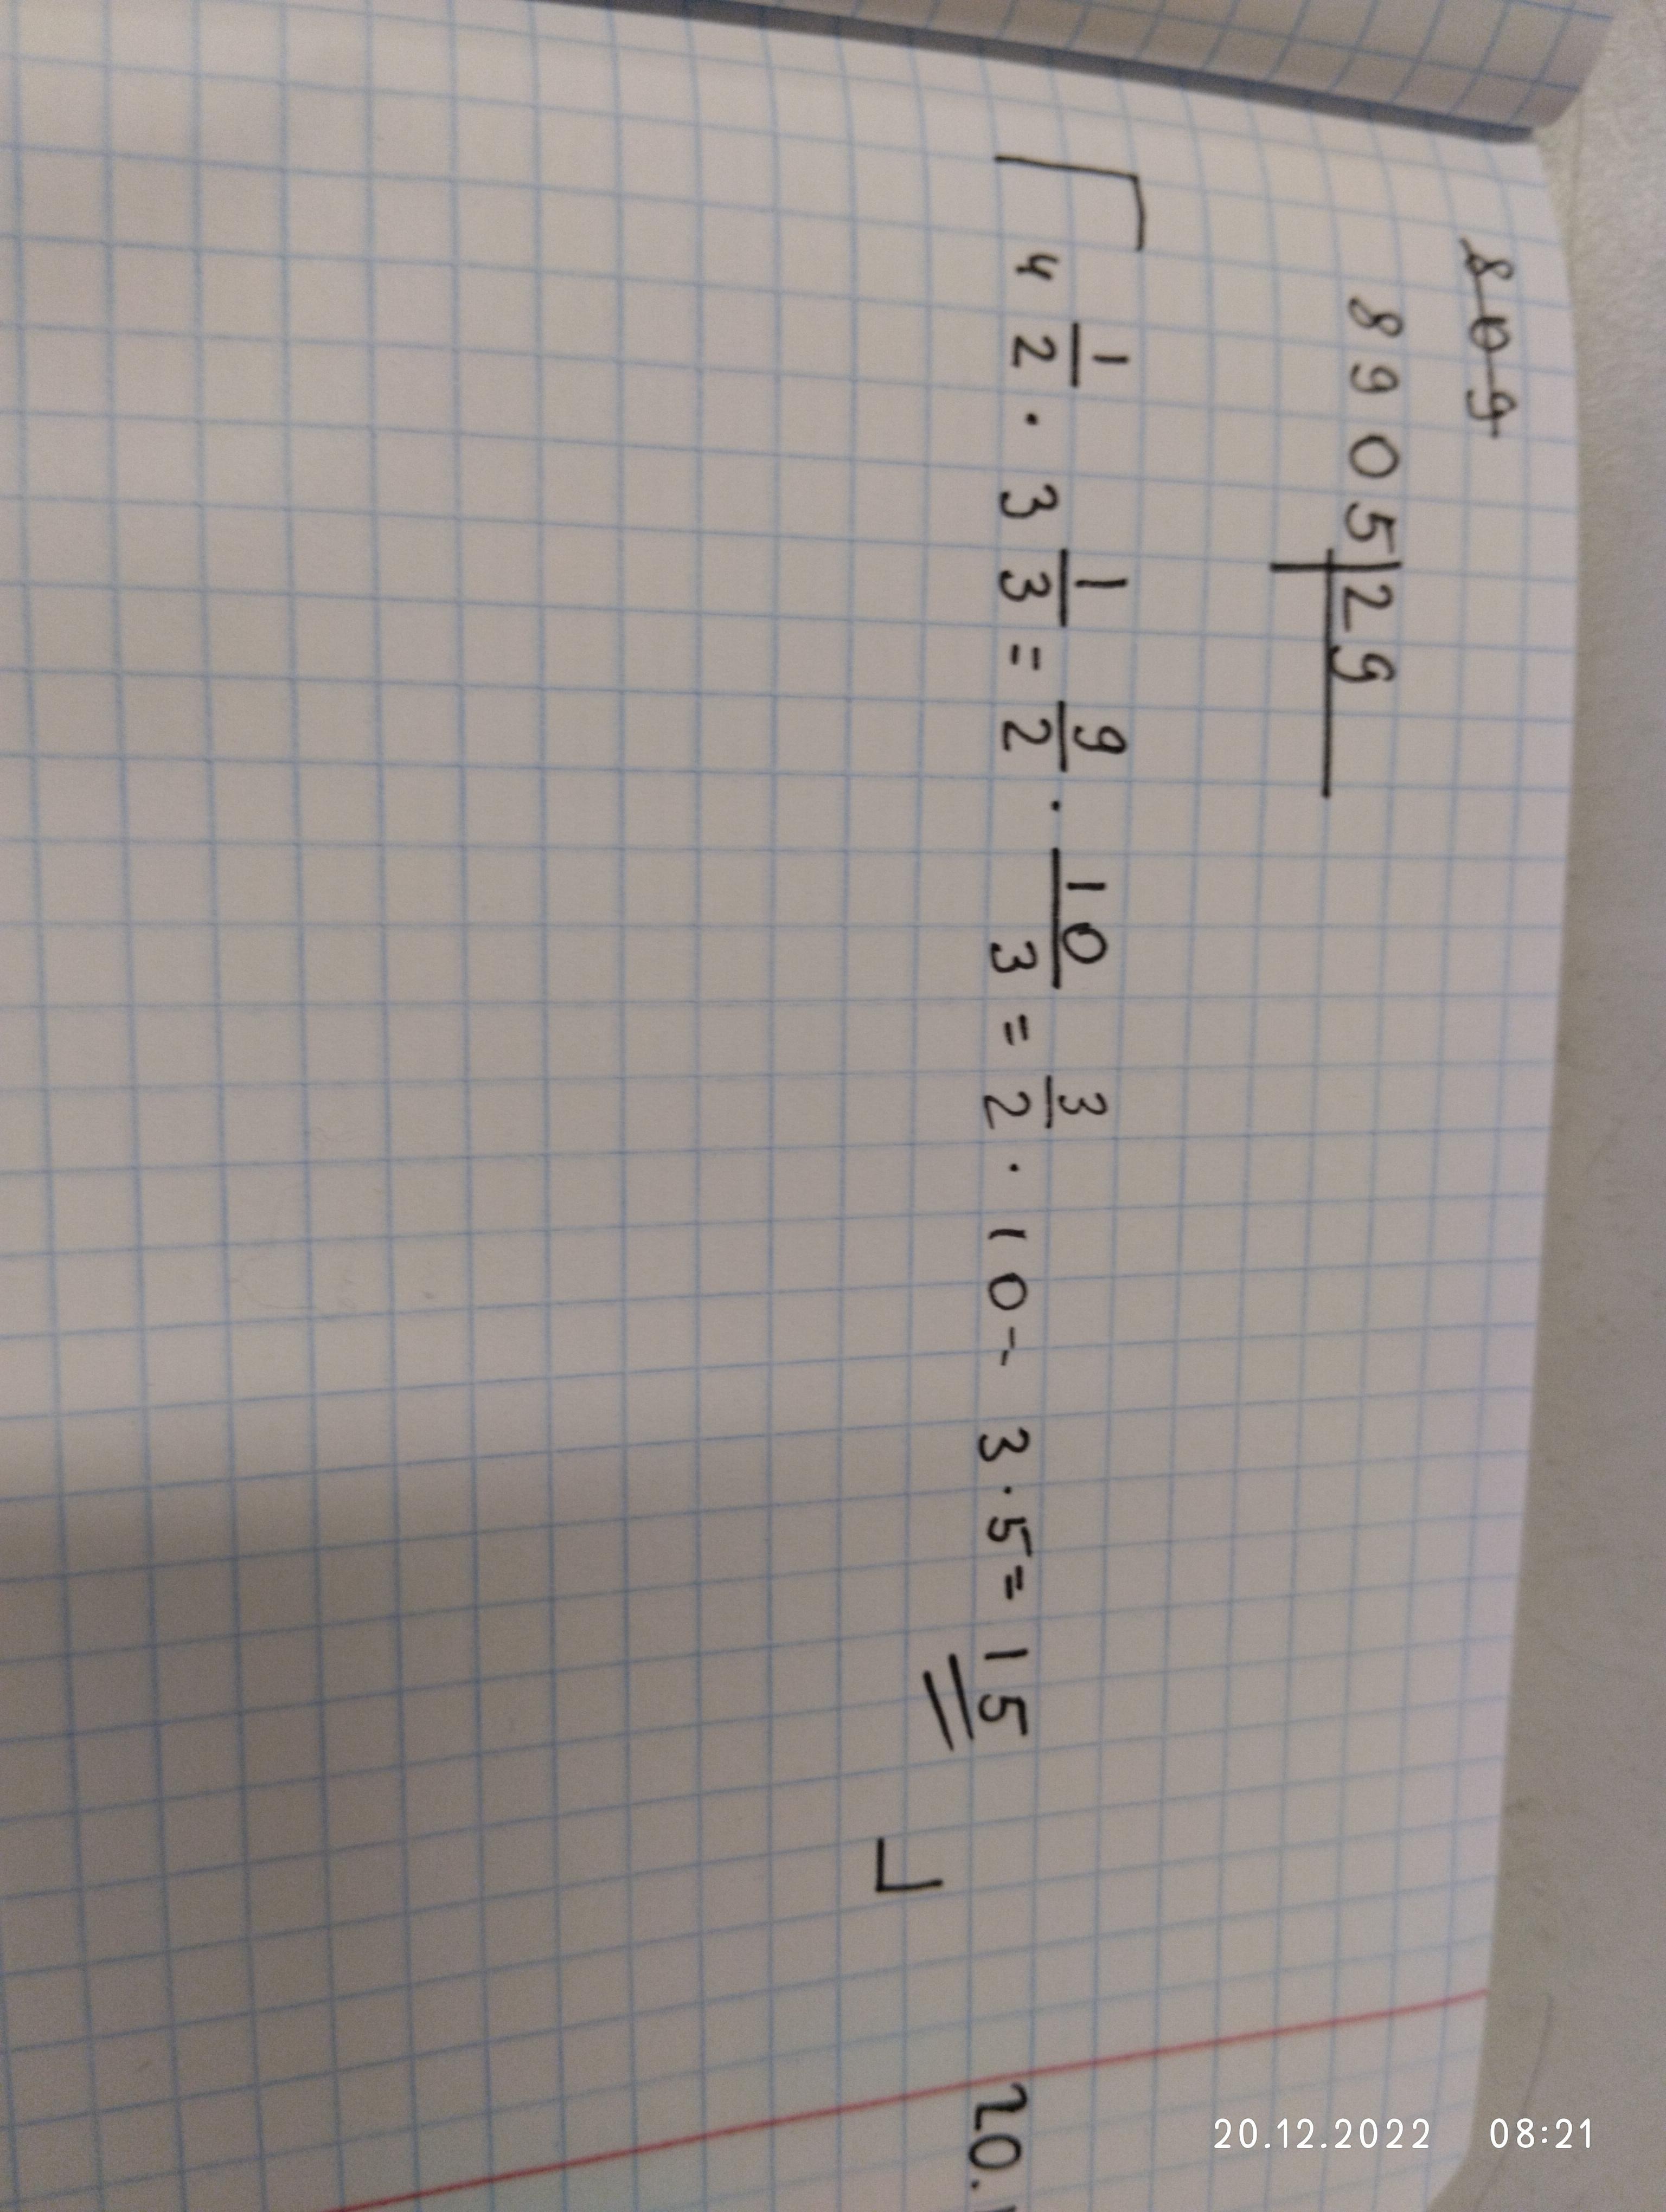 809
8905|29
4 1/2 · 3 1/3 = 9/2 · 10/3 = 3/2 · 10 = 3 · 5 = 15
20.
20.12.2022 08:21